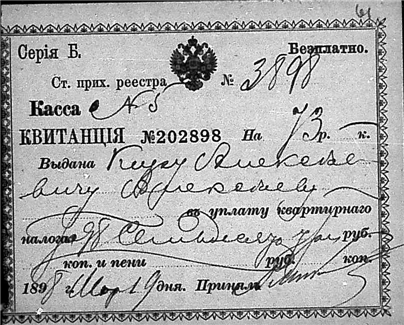 Серія Б. Безплатно.
Ст. прих. реестра № 3898
Касса № 5
КВИТАНЦІЯ №202898 На 73 р. к.
Выдана Киру Алексѣе
вичу Алексѣеву
въ уплату квартирнаго
налога 98 Семьдесят три руб.
коп. и пени руб. коп.
1898 г. Мар 19 дня. Принялъ